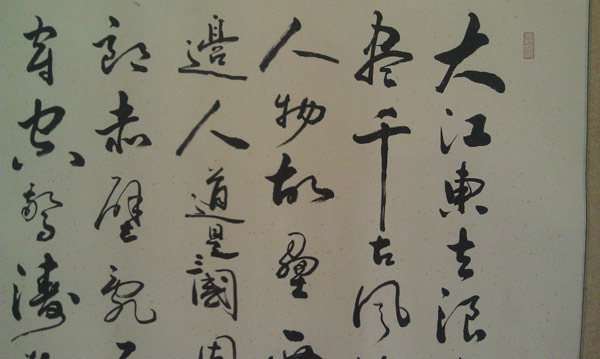 大江東去浪
尽千古風
人物故壘
邊人道是三國周
郎赤壁亂
穿空驚濤